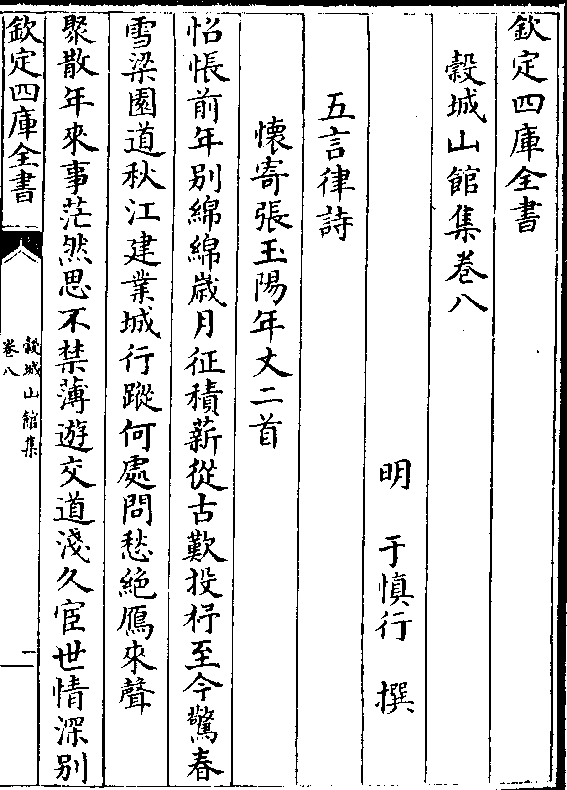 欽定四庫全書
穀城山館集巻八
明 于慎行 撰
五言律詩
懷寄張玉陽年丈二首
怊悵前年别綿綿歳月征積薪從古歎投杼至今驚春
雪梁園道秋江建業城行蹤何處問愁絶鴈來聲
聚散年來事茫然思不禁薄遊交道淺久宦世情深别
欽定四庫全書
穀城山館集
巻八
一